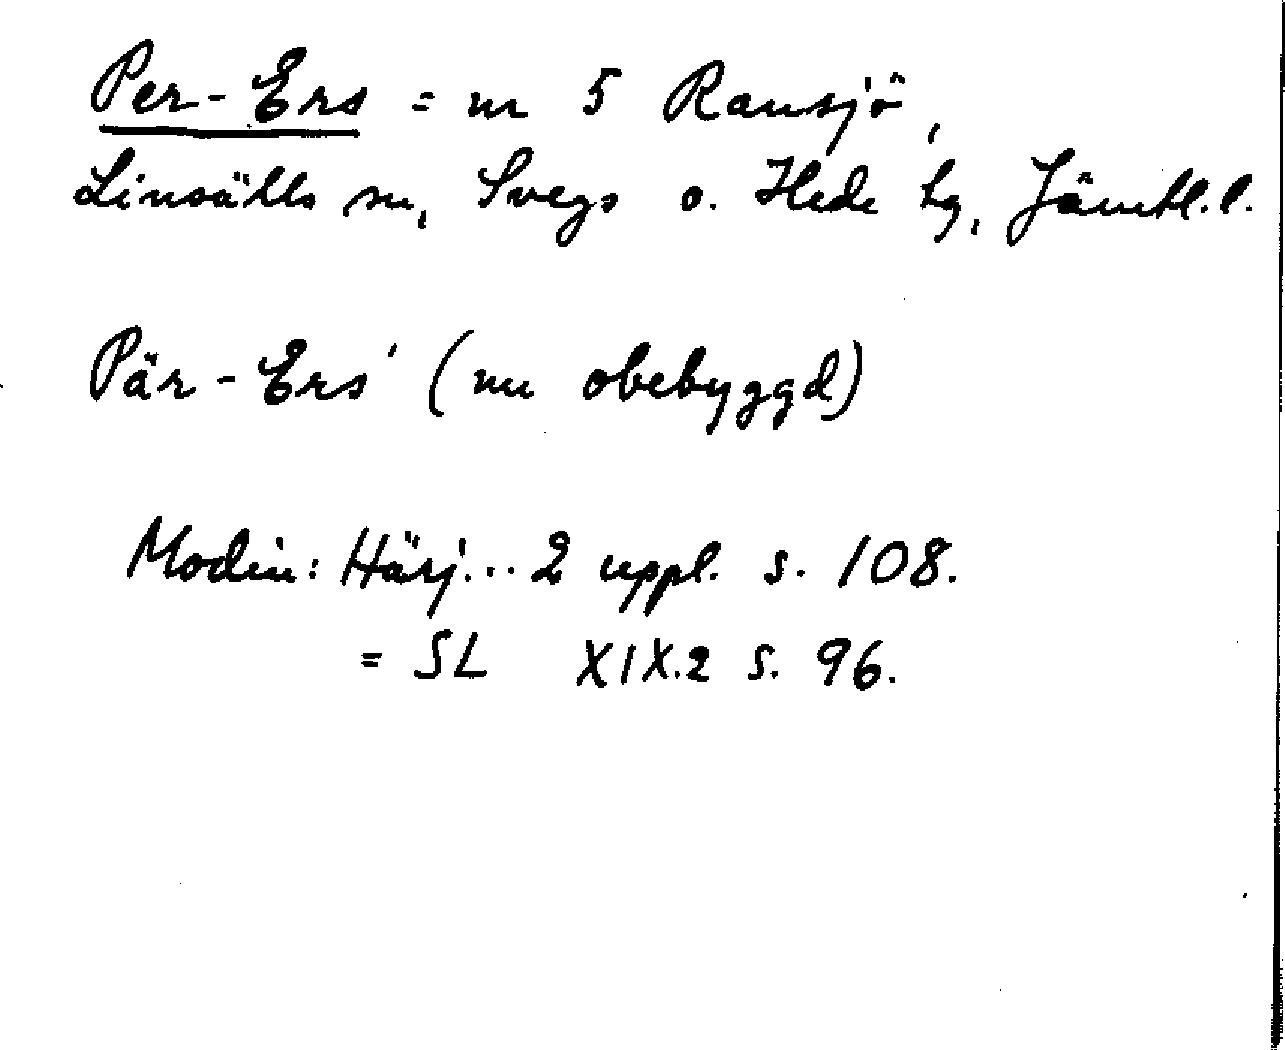 Per-Ers = nr 5 Ransjö,
Linsälls sn, Svegs o. Hede tg, Jämtl.l.
Pär-Ers' (nu obebyggd)
Modin: Härj... 2 uppl. s. 108.
= SL XIX.2 s. 96.